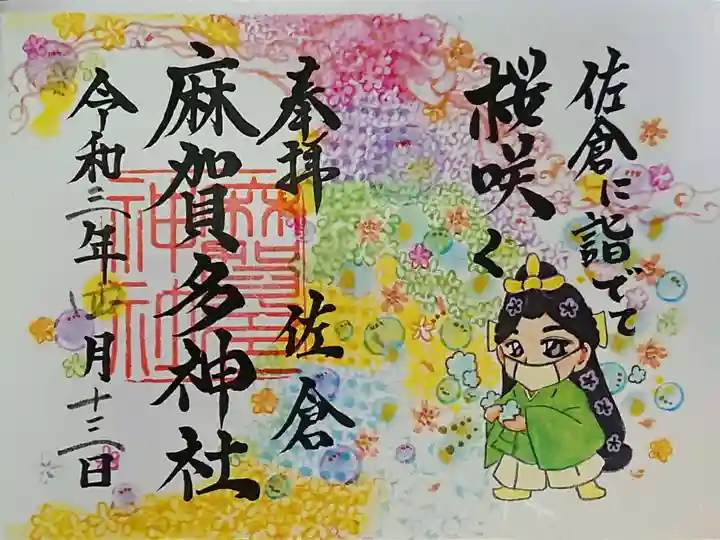 佐倉に詣でて
桜咲く
奉拝 佐倉
麻賀多神社
令和三年 月十三日
麻賀多神社